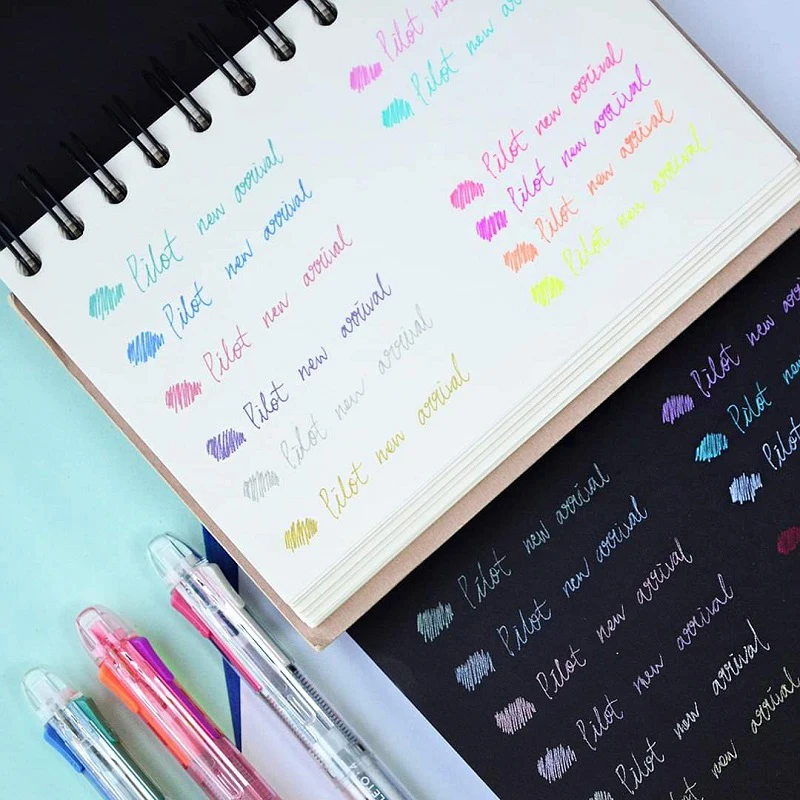 Pilot new arrival
Pilot new arrival
Pilot new arrival
Pilot new arrival
Pilot new arrival
Pilot new arrival
Pilot new
Pilot new
Pilot new arrival
Pilot new arrival
Pilot new arrival
Pilot new arrival
Pilot new
Pilot new
Pilot
Pilot new arrival
Pilot new arrival
Pilot new arrival
Pilot new arrival
Pilot new arrival
Pilot new arrival